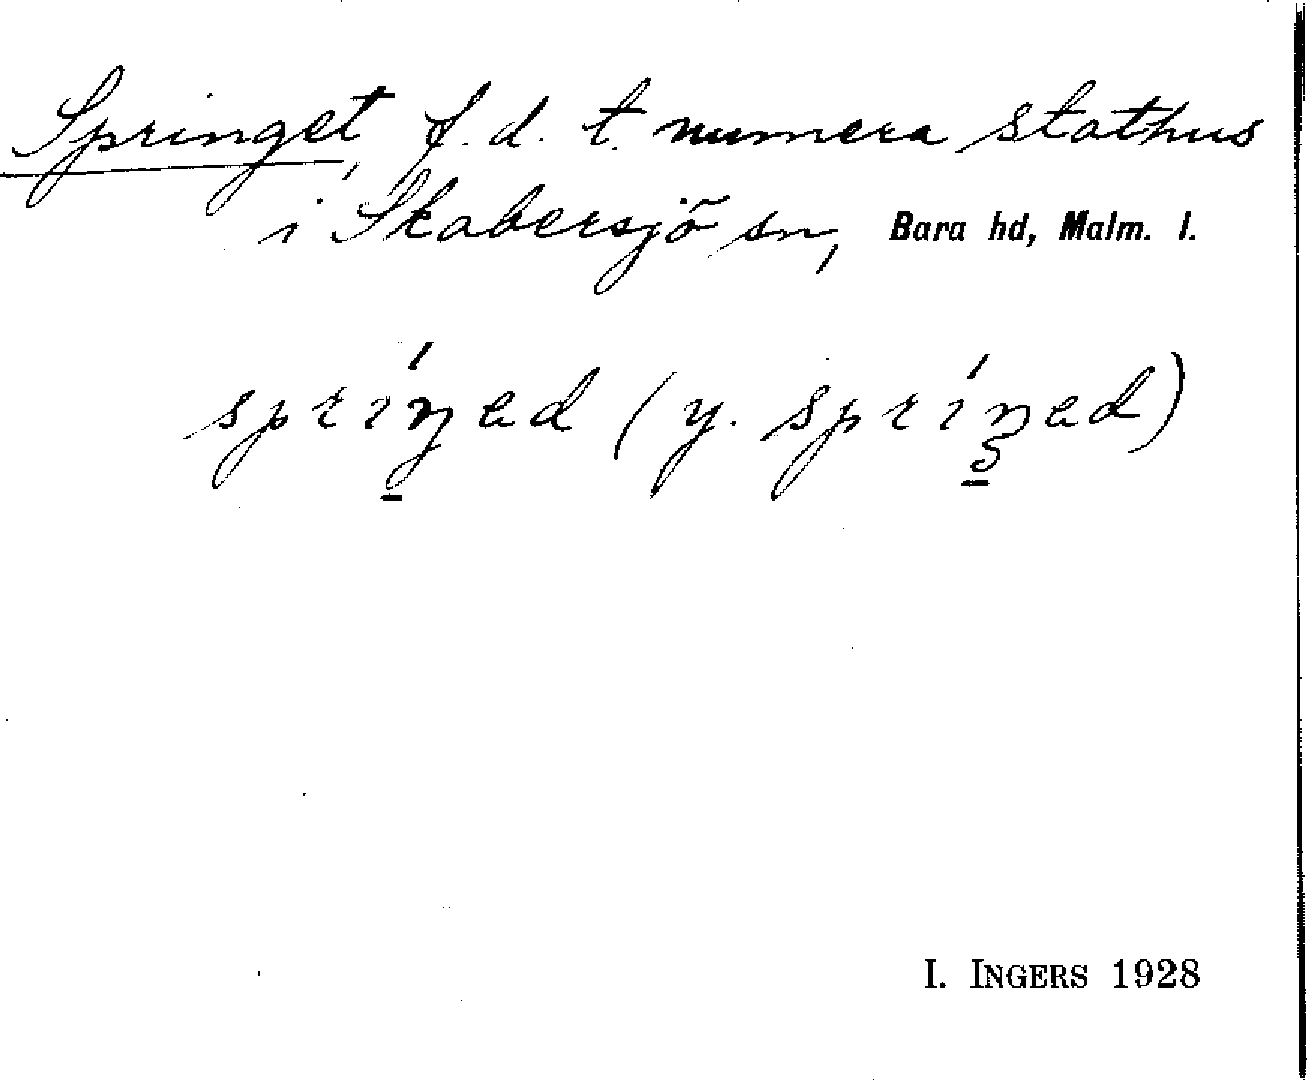 Springet, f. d. t. numera stathus
i Skabersjö sn, Bara hd, Malm. l.
spríŋ̠ed (y. spríŋ̠ed)
I. INGERS 1928